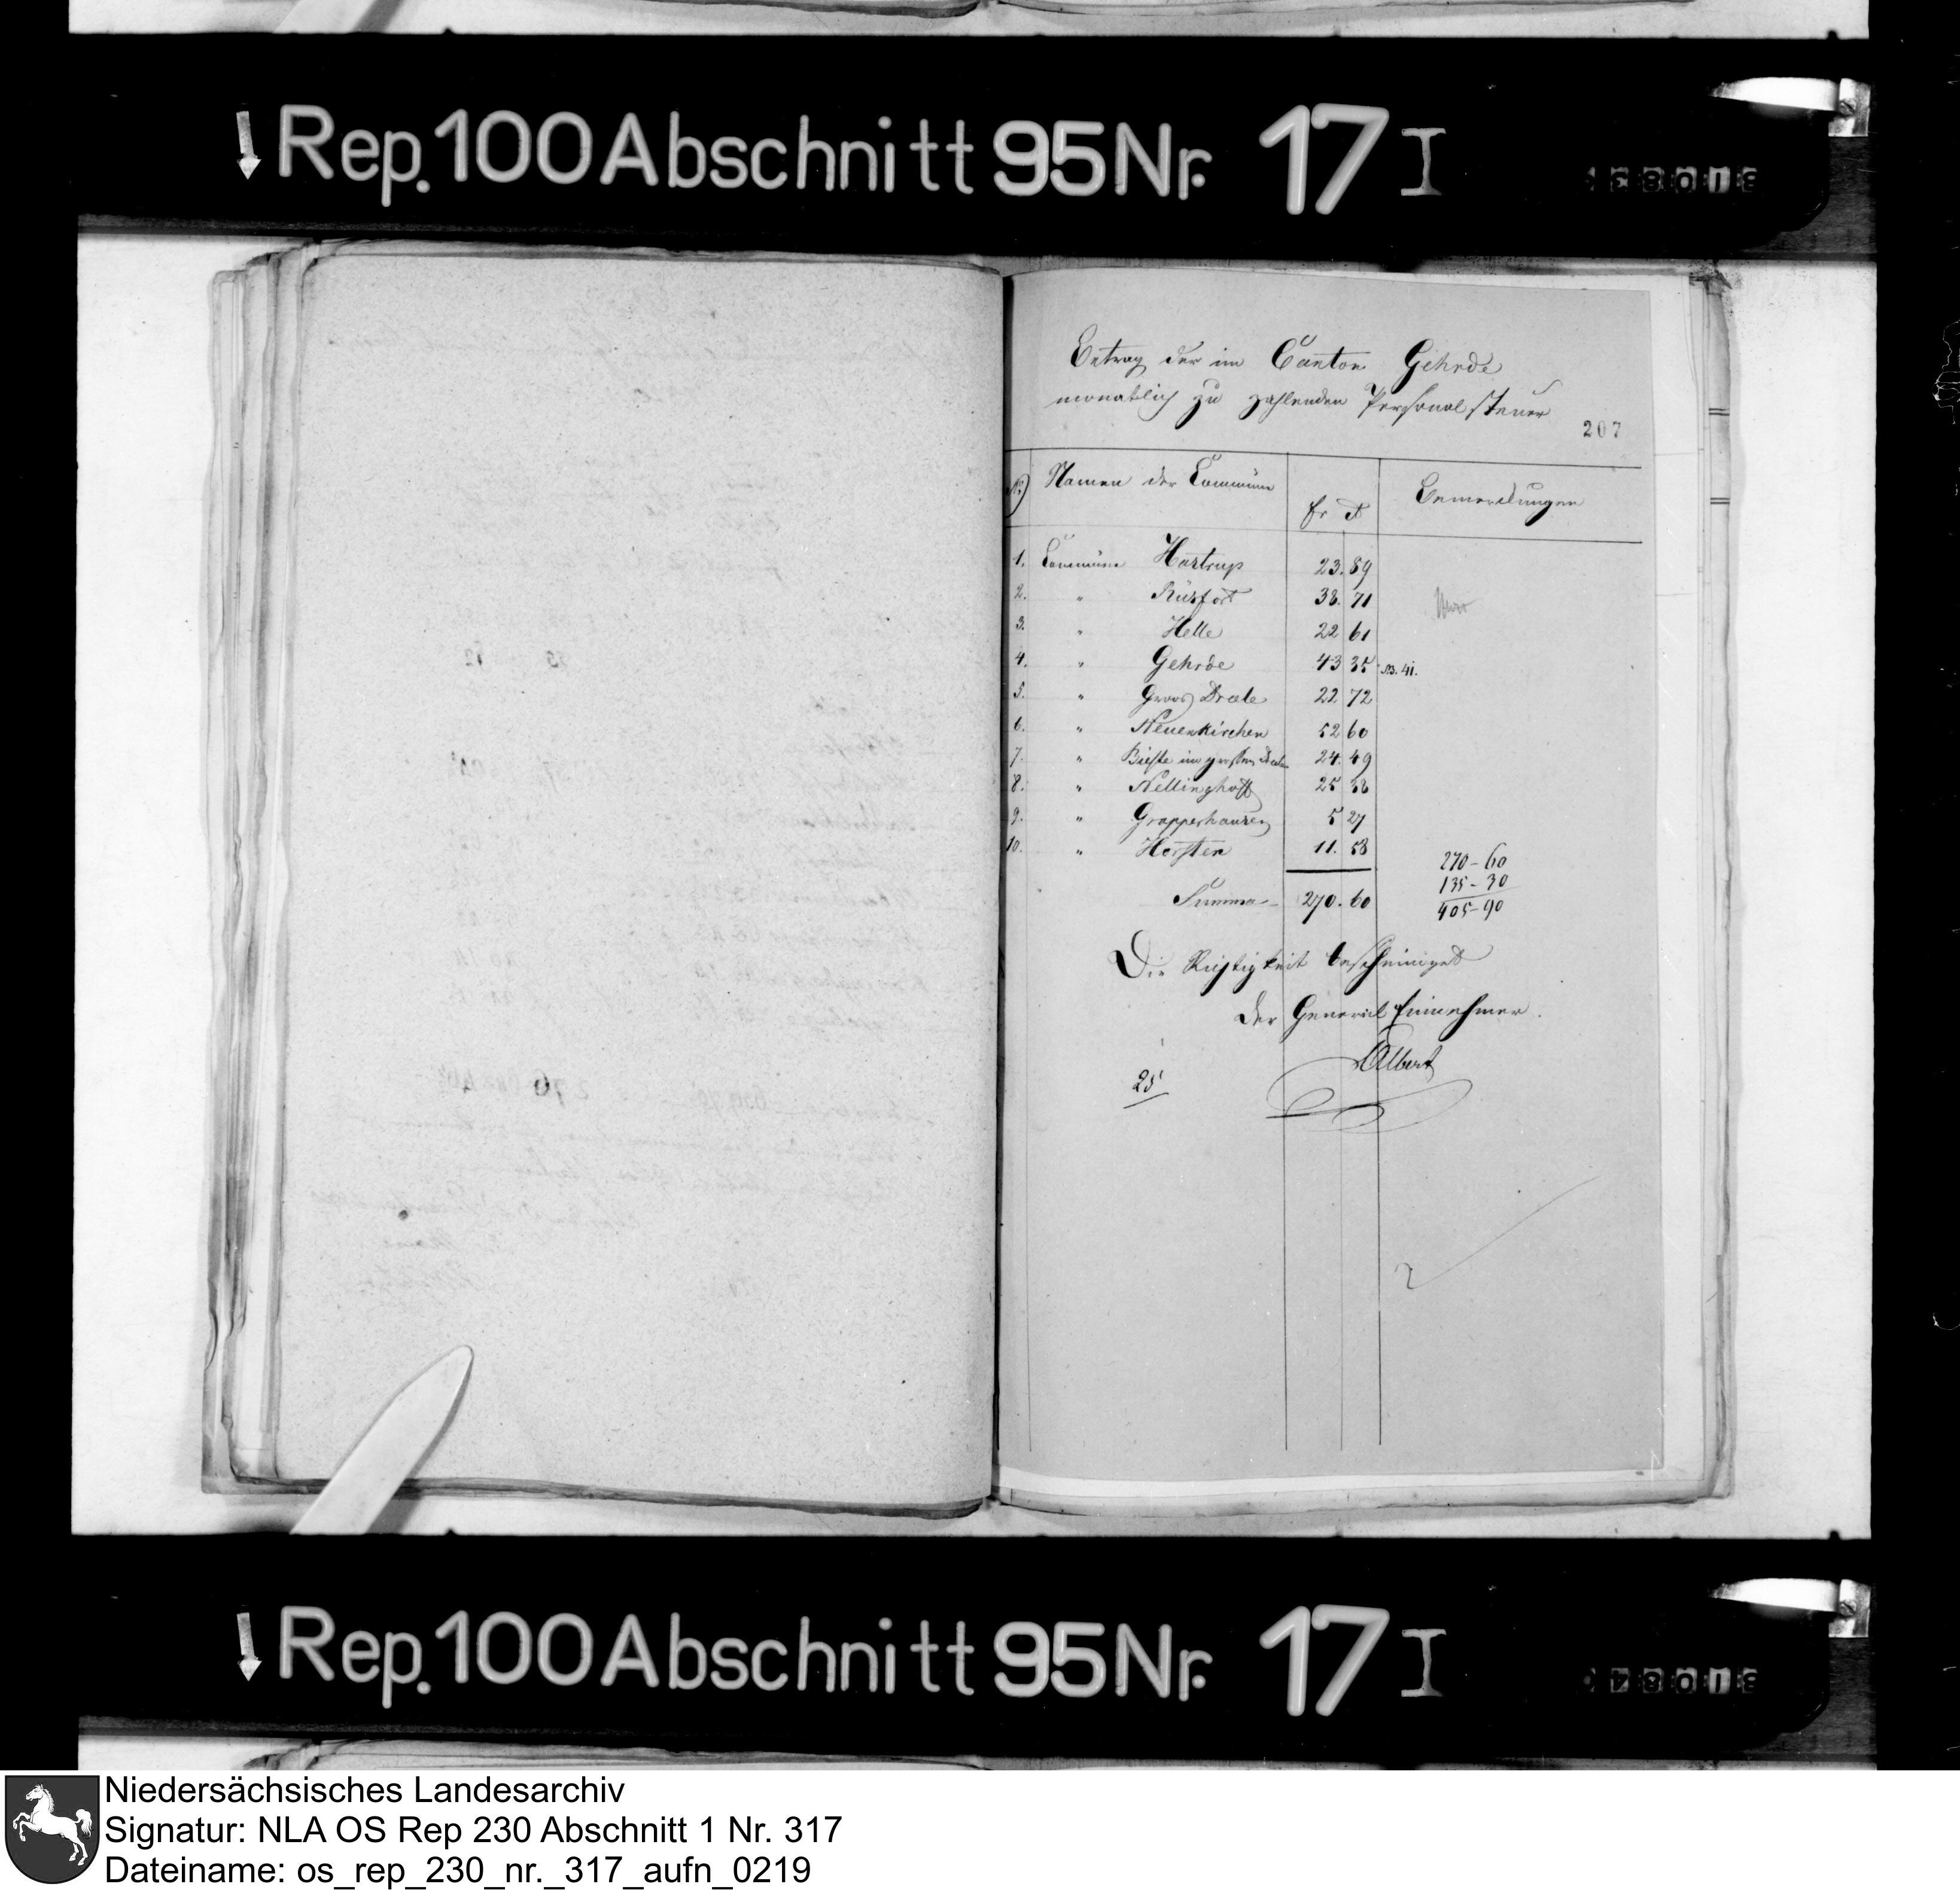 Rep. 100 Abschnitt 95 Nr. 17 I
31083
Betrag der im Canton Gehrde
monatlich zu zahlenden Personalsteuer
207
No Namen der Commüne fr ct Bemerkungen
1. Commüne Hastrup 23. 89
2. " Rüsfort 38. 71
3. " Helle 22 61
4. " Gehrde 43 35 NB. 41.
5. " Groos Drele 22 72
6. " Neuenkirchen 52 60
7. " Bieste im grossen Drelen 24. 49
8. " Nellinghoff 25 38
9. " Grapperhausen 5 27
10. " Horsten 11. 58
270-60
135-30
405-90
Summa 270. 60
Die Richtigkeit bescheiniget
der General Einnehmer.
Albert
25
Rep. 100 Abschnitt 95 Nr. 17 I
31084
Niedersächsisches Landesarchiv
Signatur: NLA OS Rep 230 Abschnitt 1 Nr. 317
Dateiname: os_rep_230_nr._317_aufn_0219